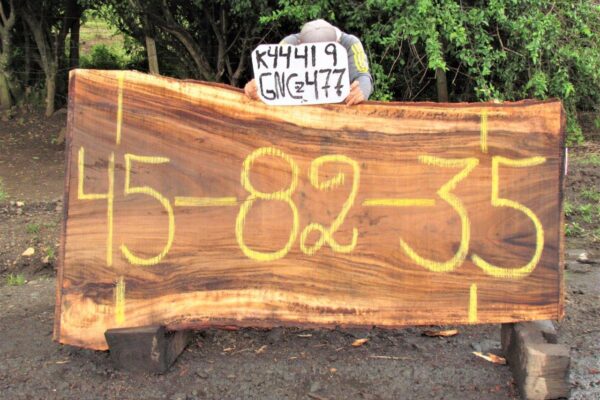 K44419
GNCz477
45-82-35